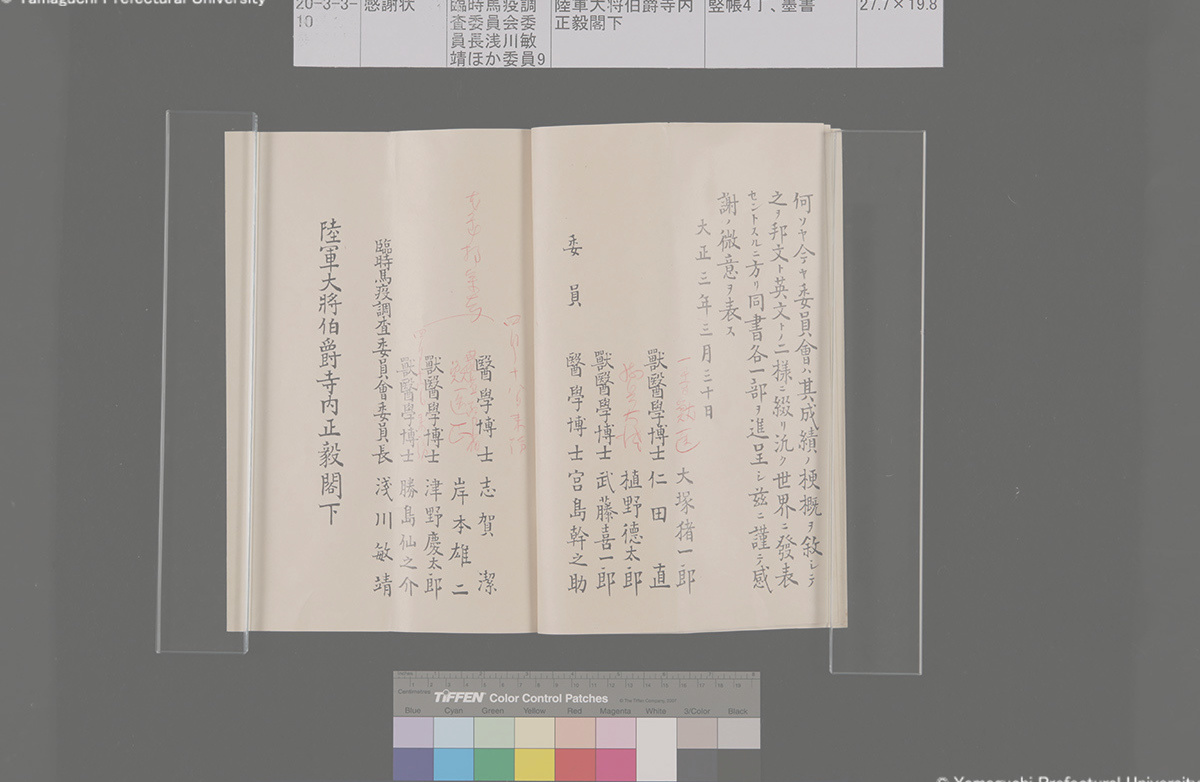 © Yamaguchi Prefectural University
20-3-3-
10
感謝状
臨時馬疫調
査委員会委
員長浅川敏
靖ほか委員9
陸軍大将伯爵寺内
正毅閣下
竪帳4丁、墨書
27.7×19.8
何ソヤ今ヤ委員會ハ其成績ノ梗概ヲ敘シテ
之ヲ邦文ト英文トノ二樣ニ綴リ汎ク世界ニ發表
セントスルニ方リ同書各一部ヲ進呈シ茲ニ謹テ感
謝ノ微意ヲ表ス
大正三年三月三十日
委員
大塚猪一郎
獸醫學博士 仁田直
植野德太郎
獸醫學博士 武藤喜一郎
醫學博士 宮島幹之助
醫學博士 志賀潔
岸本雄二
獸醫學博士 津野慶太郎
獸醫學博士 勝島仙之介
臨時馬疫調査委員會委員長 淺川敏靖
陸軍大將伯爵寺內正毅閣下
Inches
Centimetres
TIFFEN Color Control Patches
© The Tiffen Company, 2007
Blue
Cyan
Green
Yellow
Red
Magenta
White
3/Color
Black
© Yamaguchi Prefectural University